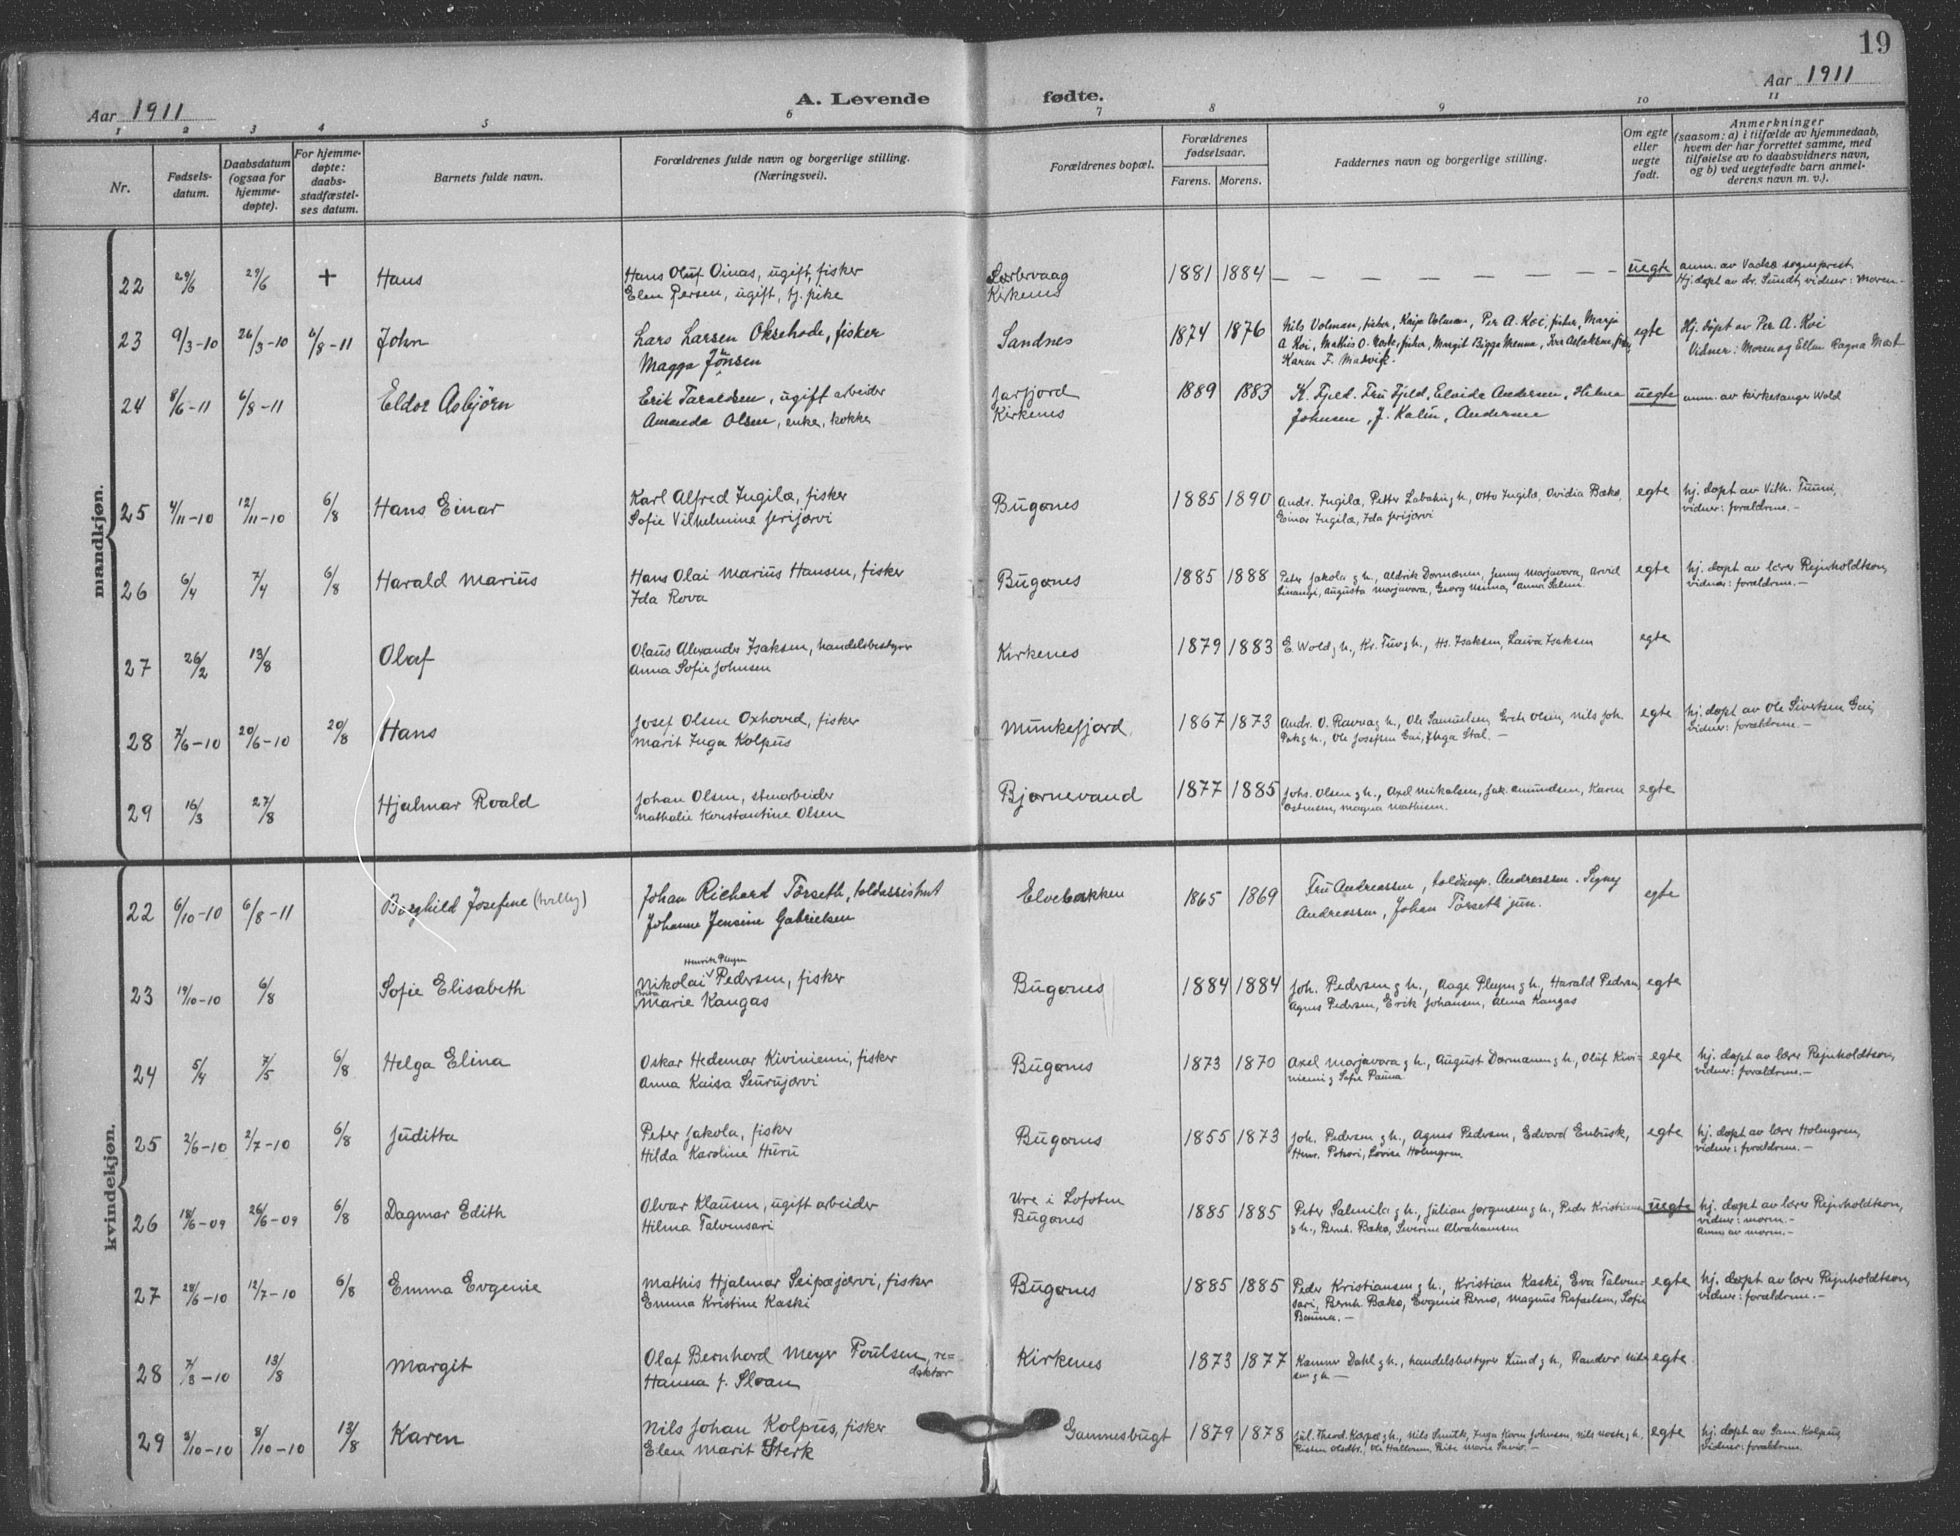 19
Aar 1911
A. Levende fødte.
Aar 1911
1 2 3 4 5 6 7 8 9 10 11
Nr.
Fødsels-
datum.
Daabsdatum
(ogsaa for
hjemme-
døpte).
For hjemme-
døpte:
daabs-
stadfæstel-
ses datum.
Barnets fulde navn.
Forældrenes fulde navn og borgerlige stilling.
(Næringsvei).
Forældrenes bopæl.
Forældrenes
fødselsaar.
Farens. Morens.
Faddernes navn og borgerlige stilling.
Om egte
eller
uegte
født.
Anmerkninger
(saasom: a) i tilfælde av hjemmedaab,
hvem der har forrettet samme, med
tilføielse av to daabsvidners navn,
og b) ved uegtefødte barn anmel-
derens navn m. v.).
mandkjøn.
22 29/6 29/6 + Hans Hans Oluf Oinas, ugift, fisker 1881 1884 — — — — — — — uegte anm. av Vadsø sogneprest
Elen Persen, ugift, tj. pike Kirkenes Hj. døpt av dr. Sundt, vidner: Moren -
23 9/3-10 26/3-10 6/8-11 John Lars Larsen Oksehode, fisker Sandnes 1874 1876 Nils Volman, fisker, Kaija Volman, Per A. Koi, fisker, Marja egte Hj. døpt av Per A. Koi
Magga Jonsen A Koi, Mathis O. fisker, Margit Bigga Menna, Aslaksen, Vidner: Moren og Ellen Ragna
Karen F. Madvik.
24 8/6-11 6/8-11 Eldor Asbjörn Erik Taraldsen, ugift arbeider Jarfjord 1889 1883 K. Fjeld. Fru Fjeld, Elvida Andersen, Hilma uegte anm. av kirkesanger Wold
Amanda Olsen, enke, kokke Kirkenes Johnsen, J. Kalin, Andersen
25 4/11-10 12/11-10 6/8 Hans Einar Karl Alfred Ingilæ, fisker Bugønes 1885 1890 Andr. Ingilæ, Petter Labahn g h., Otto Ingilæ, Ovidia Bækø, egte hj. døpt av Vilh. Tuuni,
Sofie Vilhelmine Jerijærvi Einar Ingilæ, Ida Jerijærvi vidner: forældrene. -
26 6/4 7/4 6/8 Harald Marius Hans Olai Marius Hansen, fisker Bugønes 1885 1888 Peter Jakola g h., Aldrik Dørmænen, Jenny Marjavara, Arvid egte hj. døpt av lærer Rejnholdtson,
Ida Rova Augusta Marjavara, Georg Menna, Anna Salmi vidner: forældrene. -
27 26/2 13/8 Olaf Olaus Alexander Isaksen, handelsbestyrer Kirkenes 1879 1883 E. Wold g h., Kr. Tuv g h., Hs. Isaksen, Laura Isaksen egte
Anna Sofie Johnsen
28 7/6-10 20/6-10 20/8 Hans Josef Olsen Oxhoved, fisker Munkefjord 1867 1873 Andr. O. Ravna g h., Ole Samuelsen, Grete Olsen, Nils Joh. egte hj. døpt av Ole Sivertsen Gai,
Marit Inga Kolpus g h., Ole Josefsen Gai, Inga Stal. - vidner: forældrene. -
29 16/3 27/8 Hjalmar Roald Johan Olsen, stenarbeider Bjørnevand 1877 1885 Johs. Olsen g h., Axel Mikalsen, Jak. Amundsen, Karen egte
Nathalie Konstantine Olsen Ostensen, Magna Mathisen.
kvindekjøn.
22 6/10-10 6/8-11 Borghild Josefine Johan Richard Törseth, toldassistent Elvebakken 1865 1869 Fru Andreassen, toldinsp. Andreassen. Signy egte
Johanne Jensine Gabrielsen Andreassen, Johan Törseth jun.
23 19/10-10 6/8 Sofie Elisabeth Nikolai Henrik Pleym Pedersen, fisker Bugønes 1884 1884 Joh. Pedersen g h., Aage Pleym g h., Harald Pedersen, egte
Marie Kangas Agnes Pedersen, Erik Johansen, Alma Kangas
24 5/4 7/5 6/8 Helga Elina Oskar Hedemar Kiviniemi, fisker Bugønes 1873 1870 Axel Marjavara g h., August Dørmænen g h., Oluf Kivi= egte hj. døpt av lærer Rejnholdtson,
Anna Kaisa Seurujærvi niemi g Sofie Pauna vidner: forældrene. -
25 2/6-10 2/7-10 6/8 Juditta Peter Jakola, fisker Bugønes 1855 1873 Joh. Pedersen g h., Agnes Pedersen, Edvard Enbusk, egte hj. døpt av lærer Holmgren,
Hilda Karoline Huru Henr. Pokori, Lovisa Holmgren. vidner: forældrene. -
26 18/6-09 26/6-09 6/8 Dagmar Edith Olvar Klausen, ugift arbeider Ure i Lofoten 1885 1885 Peter Salmila g h., Julian Jørgensen g h., Peder Kristiansen uegte hj. døpt av lærer Rejnholdtson,
Hilma Talvensari Bugønes g h., Bernh. Bækø, Severine Abrahamsen vidner: moren. -
Anm. av moren. -
27 28/6-10 12/7-10 6/8 Emma Evgenie Mathis Hjalmar Seipæjærvi, fisker Bugønes 1885 1885 Peder Kristiansen g h., Kristian Kaski, Eva Talven= egte hj. døpt av lærer Rejnholdtson,
Emma Kristine Kaski sari, Bernh. Bækø, Evgenie Bernø, Magnus Rafaelsen, Sofie vidner: forældrene. -
Bauna. -
28 7/3-10 13/8 Margit Olaf Bernhard Meyer Poulsen, re= Kirkenes 1873 1877 Dahl g h., handelsbestyrer Lund g h., Randor Nil= egte
daktør
Hanna f. Sloan sen g h -
29 3/10-10 8/10-10 13/8 Karen Nils Johan Kolpus, fisker Gamnesbugt 1879 1878 Jul. Theod. g h., Nils Smuk, Inga Karen Johnsen, Nils Noste g h., egte hj. døpt av Sam. Kolpus,
Elen Marit Sterk Ole Halvorsen, Brite Marie Savio. - vidner: forældrene.